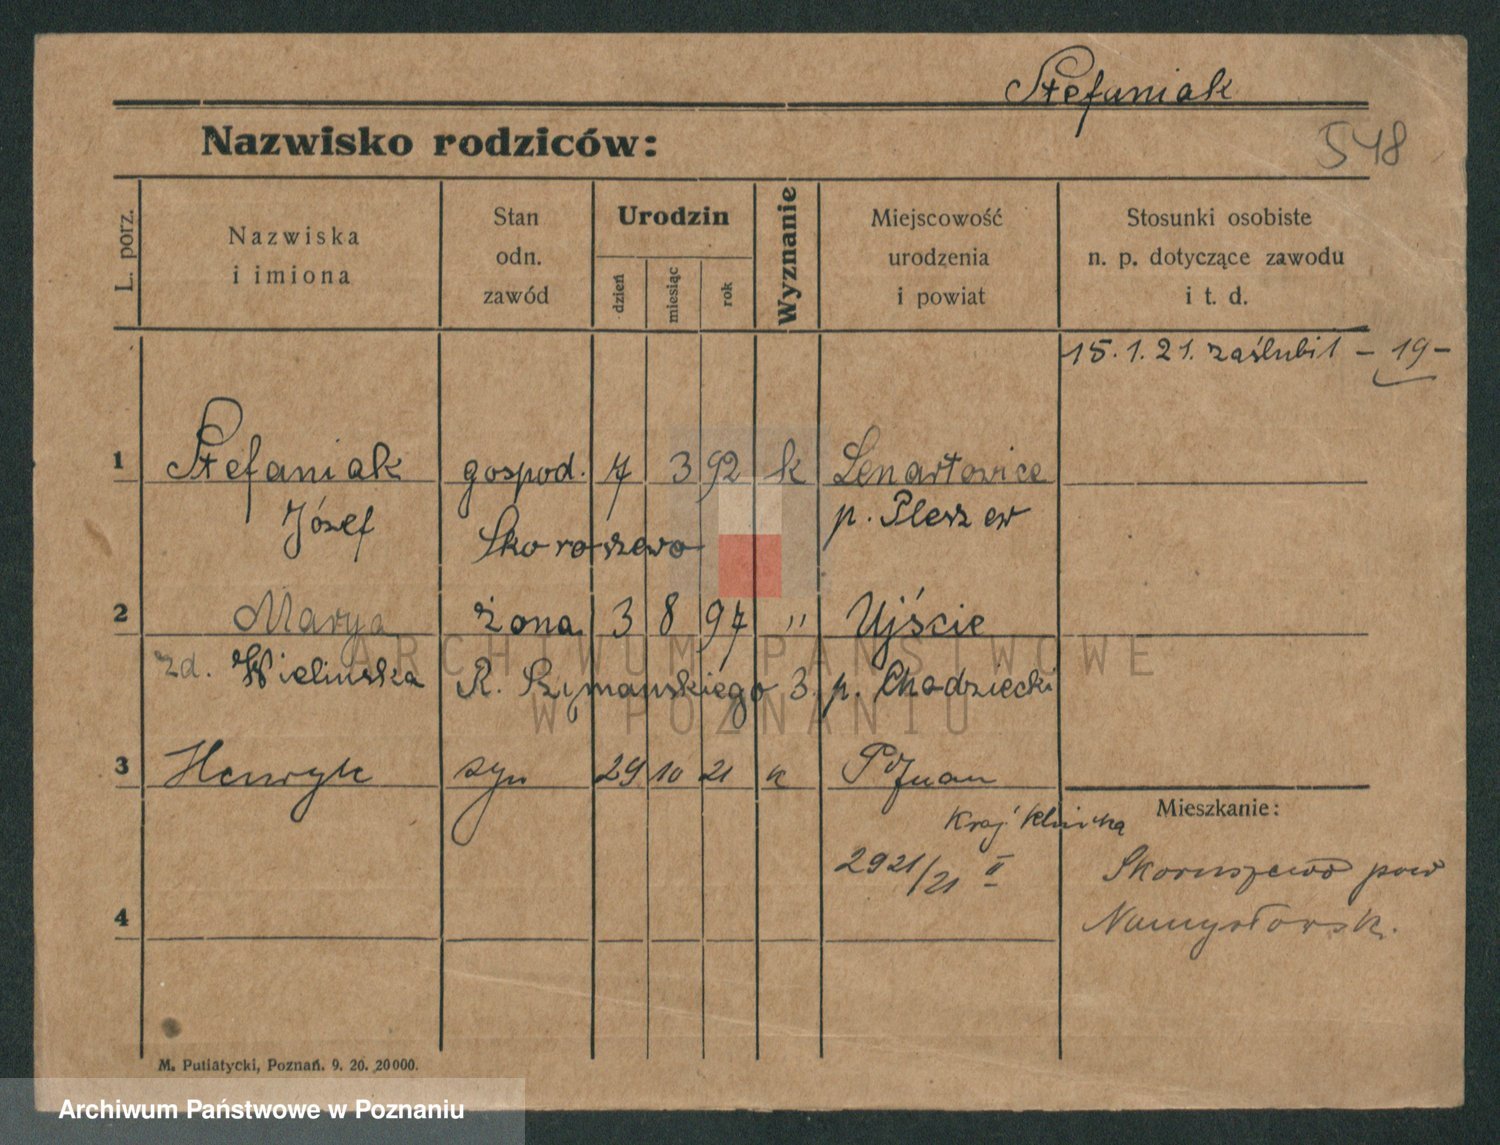 Stefaniak
Nazwisko rodziców:
548
L. porz.
Nazwiska
i imiona
Stan
odn.
zawód
Urodzin
dzień
miesiąc
rok
Wyznanie
Miejscowość
urodzenia
i powiat
Stosunki osobiste
n. p. dotyczące zawodu
i t. d.
15.1.21. zaślubił - 19 -
1 Stefaniak gospod. 7 3 92 k Lenartowice
Józef Skoroszewo p. Pleszew
2 Marya żona 3 8 97 " Ujście
zd. Wielińska R. Szymańskiego 3. p. Chodziecki
ARCHIWUM PAŃSTWOWE
W POZNANIU
3 Henryk syn 29 10 21 k Poznan
Kraj klinika
Mieszkanie:
2921/21 II
Skoruszewo pow
4
Namysłowsk.
M. Putiatycki, Poznań. 9. 20. 20000.
Archiwum Państwowe w Poznaniu